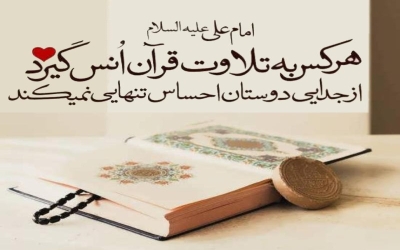 امام علی علیه السلام
هرکس به تلاوت قرآن اُنس گیرد
از جدایی دوستان احساس تنهایی نمیکند